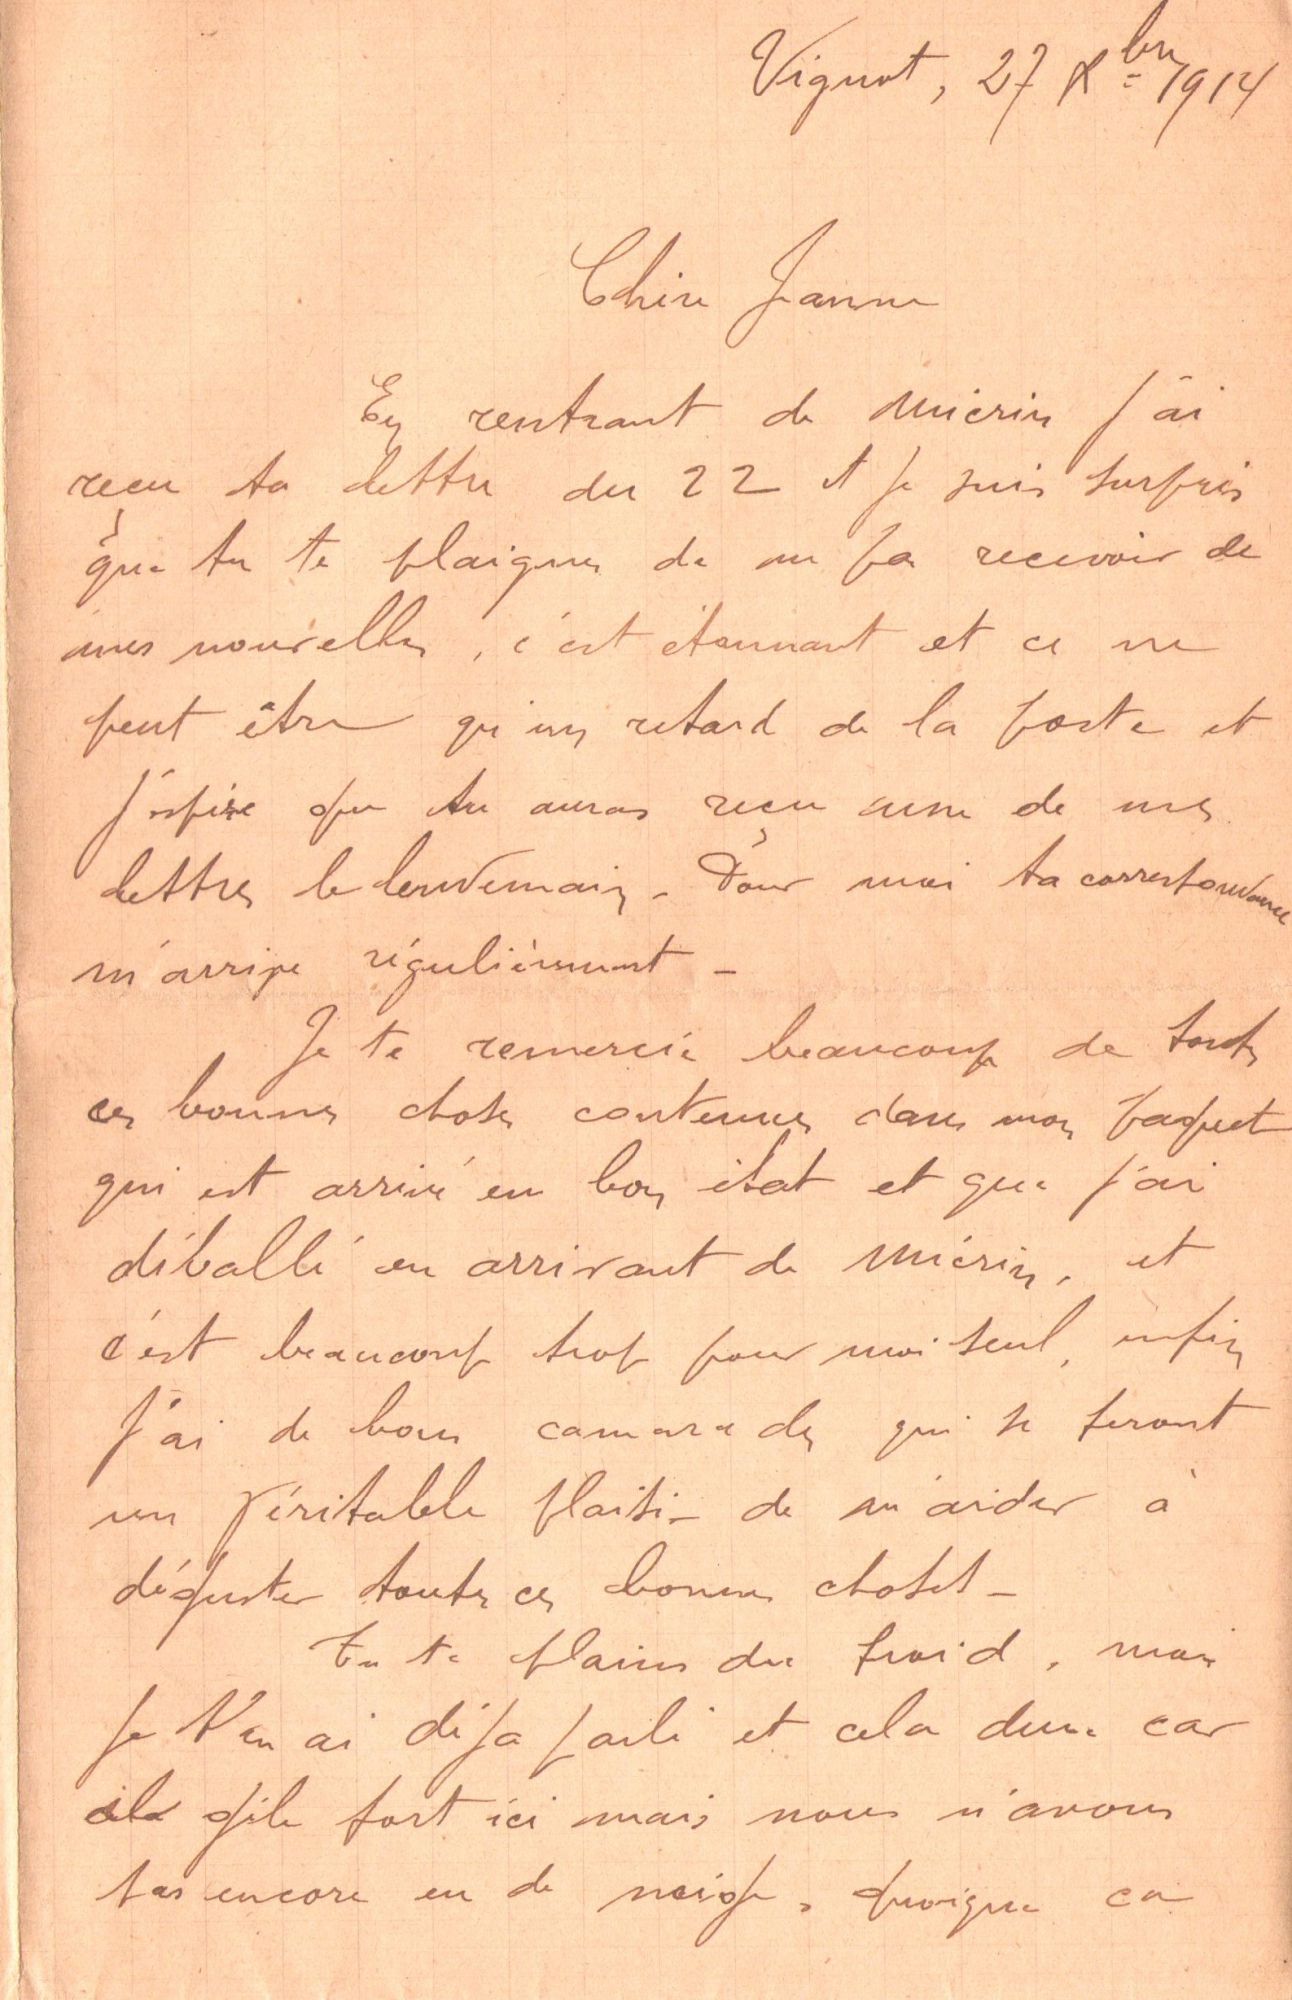 Vignot, 27 Xbre 1914
Chère Jeanne
En rentrant de Mécrin j'ai
reçu ta lettre du 22 et je suis surpris
que tu te plaignes de ne pas recevoir de
mes nouvelles, c'est étonnant et ce ne
peut être qu'un retard de la poste et
j'espère que tu auras reçu une de mes
lettres le lendemain - Pour moi ta correspondance
m'arrive régulièrement -
Je te remercie beaucoup de toutes
ces bonnes choses contenues dans mon paquet
qui est arrivé en bon état et que j'ai
déballé en arrivant de Mécrin, et
c'est beaucoup trop pour moi seul, enfin
j'ai de bons camarades qui se feront
un véritable plaisir de m'aider à
déguster toutes ces bonnes choses -
Tu te plains du froid, mais
je t'en ai déjà parlé et cela dure car
il gèle fort ici mais nous n'avons
pas encore eu de neige, quoique ça